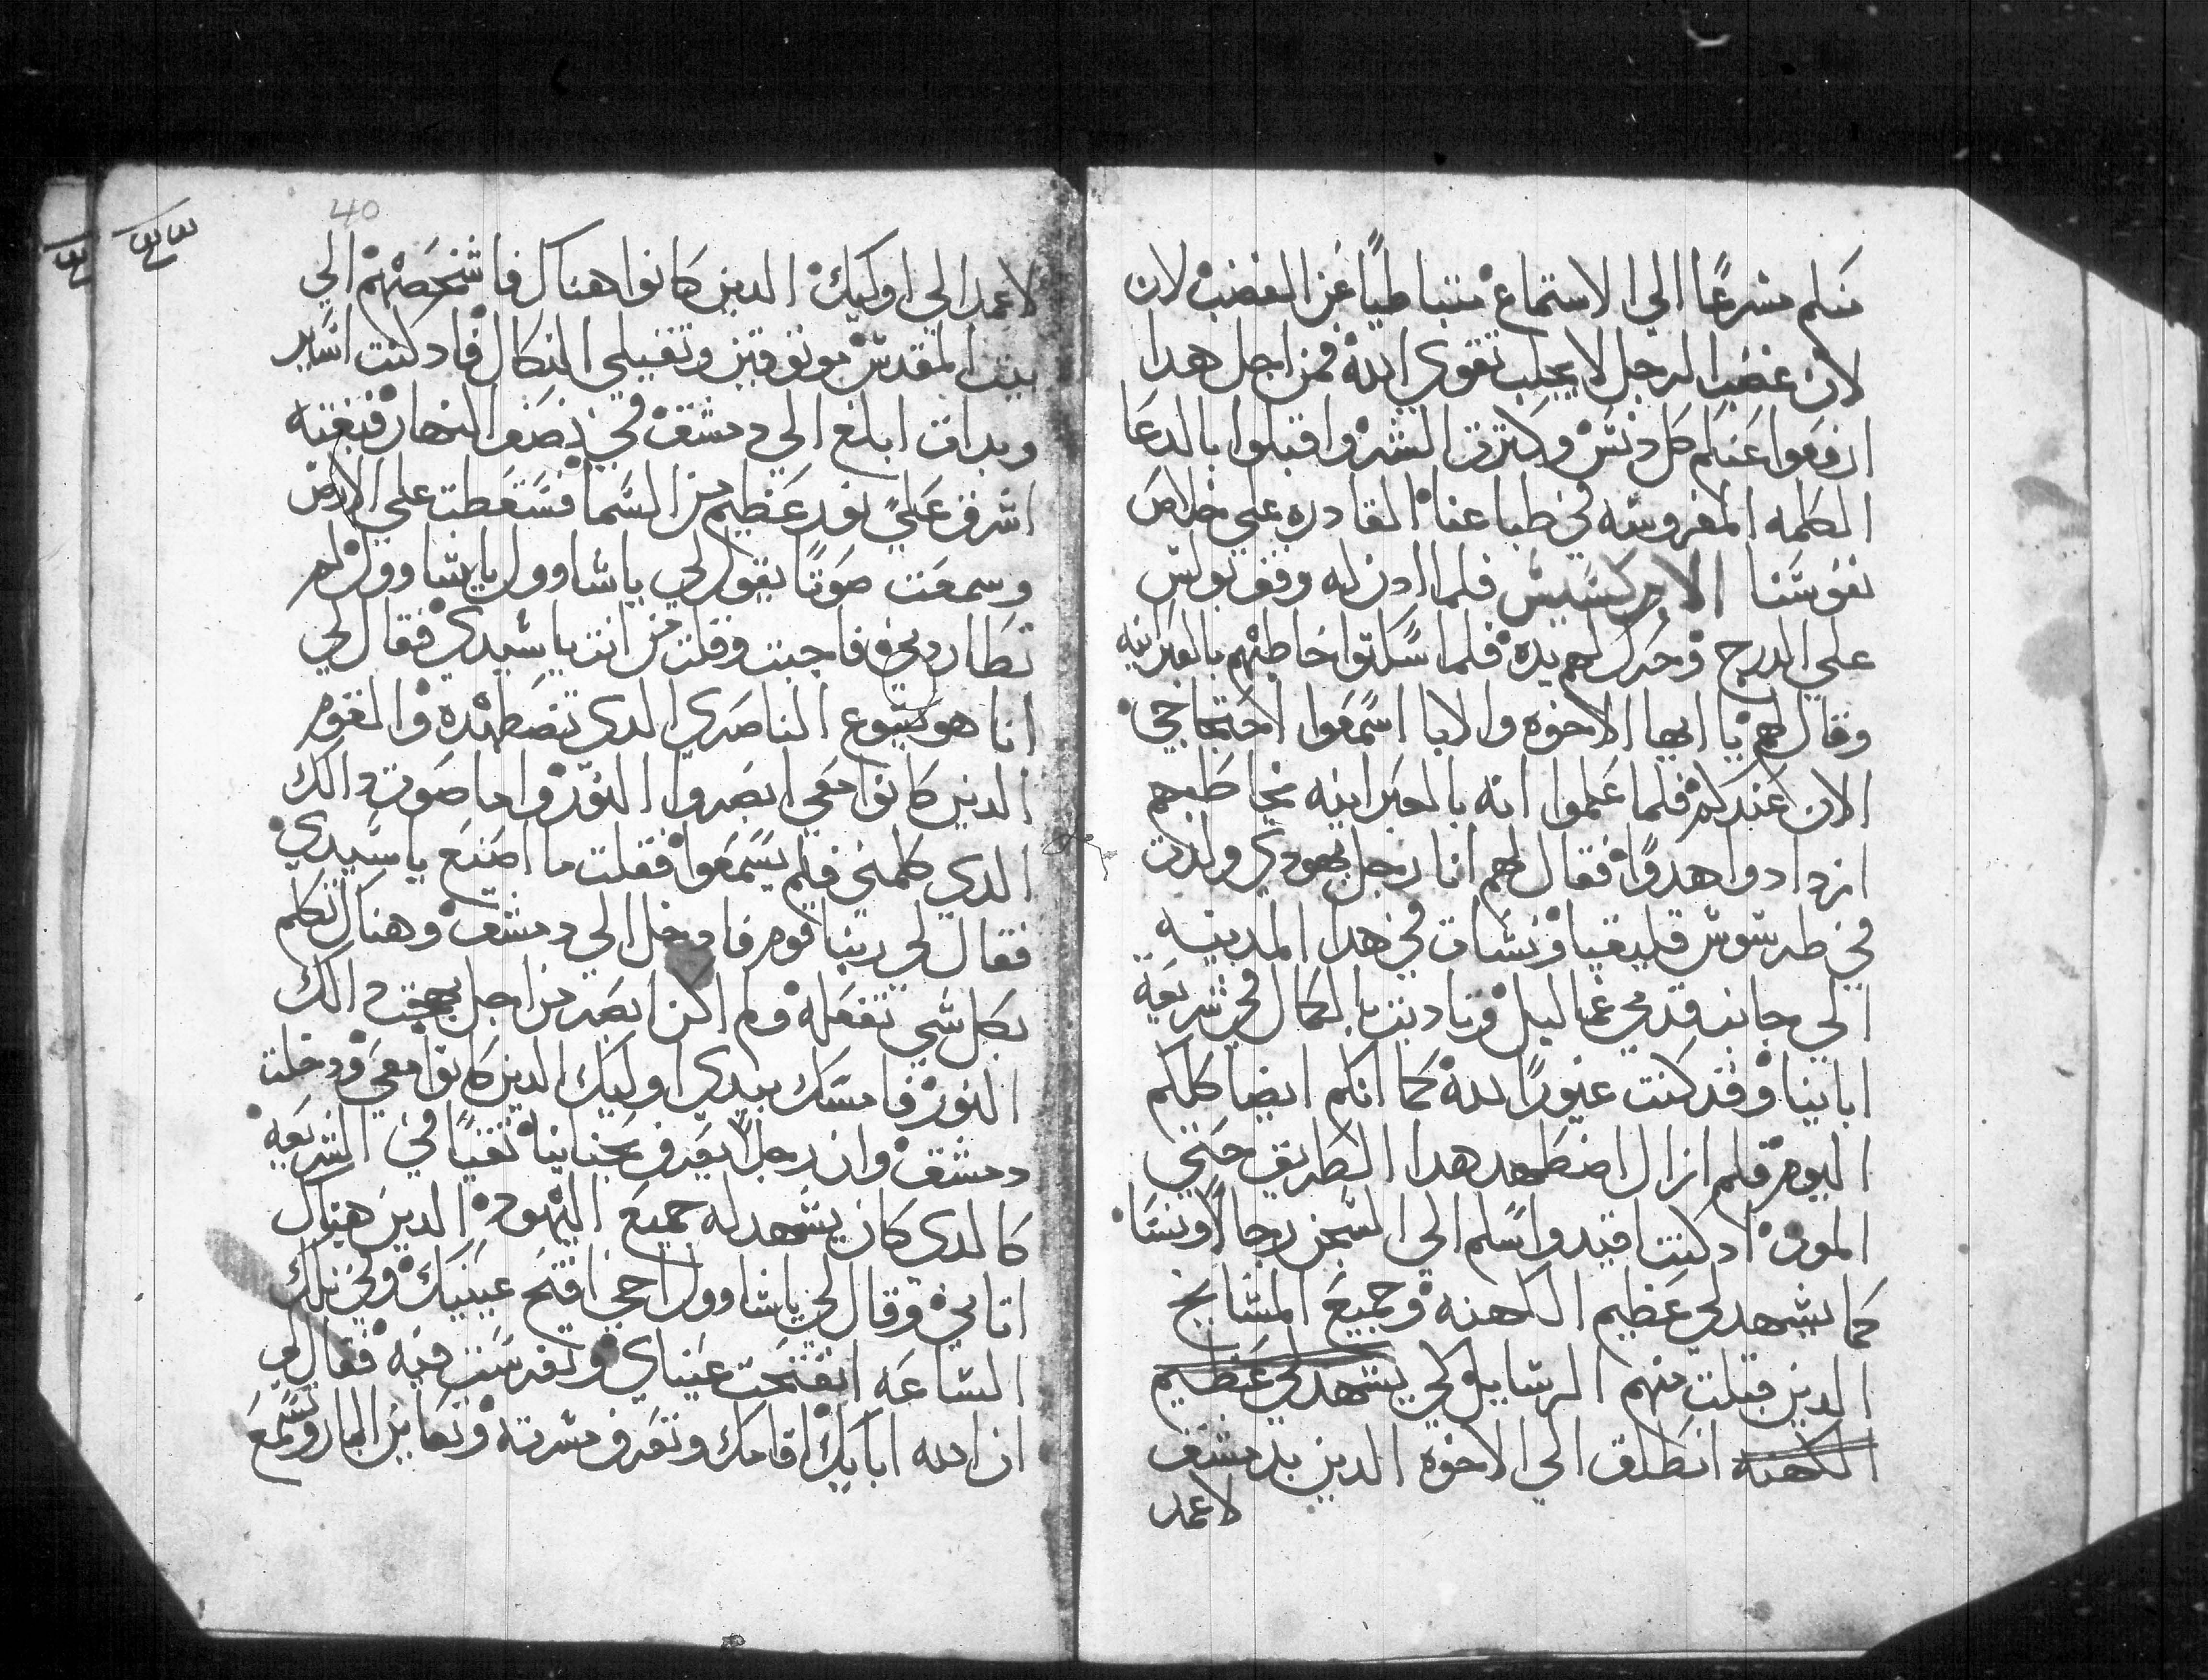 منكم مسرعًا الي الاستماع متباطيًا عن الغضب لان
لان غضب الرجل لا يجلب تقوي الله فمن اجل هدا
ارفعوا عنكم كل دنس وكترت الشر واقبلوا بالدعا
الكلمه المغروسه في طباعنا القادره علي خلاص
نفوسنا الابركسيس فلما ادن له وقف بولس
علي الدرج وحرك لهم يده فلما سكتوا خاطبهم بالعبرانيه
وقال لهم يا ايها الاخوه والابا اسمعوا احتجاجي
الان عندكم فلما علموا انه بالعبرانيه يخاطبهم
ازدادوا هدوًا فقال لهم انا رجل يهودي ولدت
في طرسوس قليقيا ونشات في هدا المدينه
الي جانب قدمي غمالييل وتادبت بالكمال في شريعة
اباينا وقد كنت غيورًا لله كما انكم ايضا كلكم
اليوم فلم ازال اضطهد هدا الطريق حتي
الموت اد كنت اقيد واسلم الي السجن رجالًا ونسا
كما يشهد لي عظيم الكهنه وجميع المشايخ
الدين قبلت منهم الرسايل لكي يشهد لي عظيم
الكهنه انطلق الي الاخوه الدين بدمشق
لاعمد
40
لاعمد الي اوليك الدين كانوا هناك فاشخصهم الي
بيت المقدس موتوقين وتقبلي النكال فاد كنت اساير
وبدات ابلغ الي دمشق في نصف النهار فبغته
اشرق عليَّ نور عظيم من السما فسقطت علي الارض
وسمعت صوتًا يقول لي ياشاوول ياشاوول لم
تطاردني فاجبت وقلت من انت ياسيدي فقال لي
انا هو يسوع الناصري الدي تضطهده والقوم
الدين كانوا معي ابصروا النور واما صوت دالك
الدي كلمني فلم يسمعوا فقلت ما اصنع ياسيدي
فقال لي ربنا قوم فادخل الي دمشق وهناك تكلم
بكل شي تفعله ولم اكن ابصر من اجل بهجت دالك
النور فامسك بيدي اوليك الدين كانوا معي ودخلت
دمشق وان رجلًا يعرف بحنانيا تقيًا في الشريعه
كالدي كان يشهد له جميع اليهود الدين هناك
اتاني وقال لي ياشاوول اخي افتح عينيك وفي تلك
الساعه انفتحت عيناي وتفرست فيه فقال لي
ان الله ابايك اقامك وتعرف مسرته وتعاين البار وتسمع